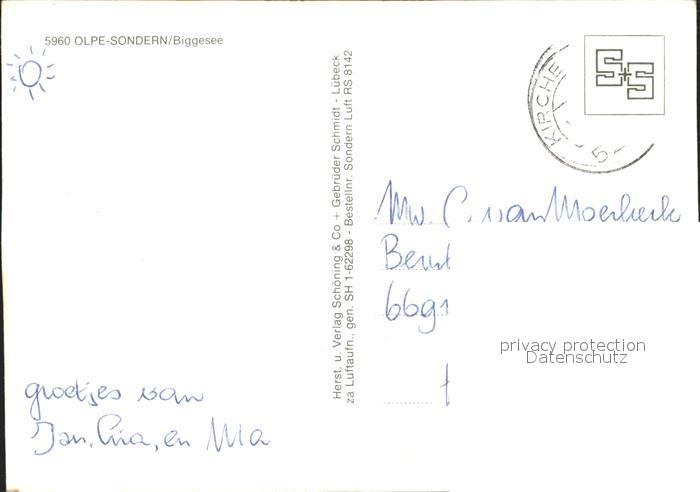 5960 OLPE-SONDERN/Biggesee
groetjes van
Jan, Ria, en Mia
Herst. u. Verlag Schöning & Co + Gebrüder Schmidt - Lübeck
za Luftaufn., gen. SH 1-62298 - Bestellnr. Sondern Luft RS 8142
KIRCHE
5
S+S
Mw. C. van Moerkerk
6691
privacy protection
Datenschutz